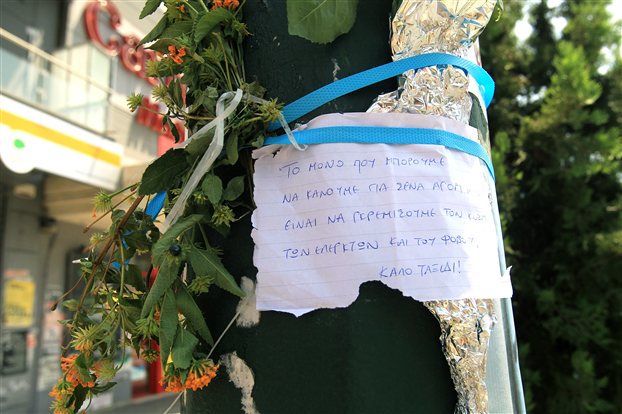 ΤΟ ΜΟΝΟ ΠΟΥ ΜΠΟΡΟΥΜΕ
ΝΑ ΚΑΝΟΥΜΕ ΓΙΑ ΣΕΝΑ ΑΓΟΡΙ
ΕΙΝΑΙ ΝΑ ΓΚΡΕΜΙΣΟΥΜΕ ΤΟΝ
ΤΩΝ ΕΛΕΓΚΤΩΝ ΚΑΙ ΤΟΥ ΦΟΒΟΥ
ΚΑΛΟ ΤΑΞΙΔΙ!